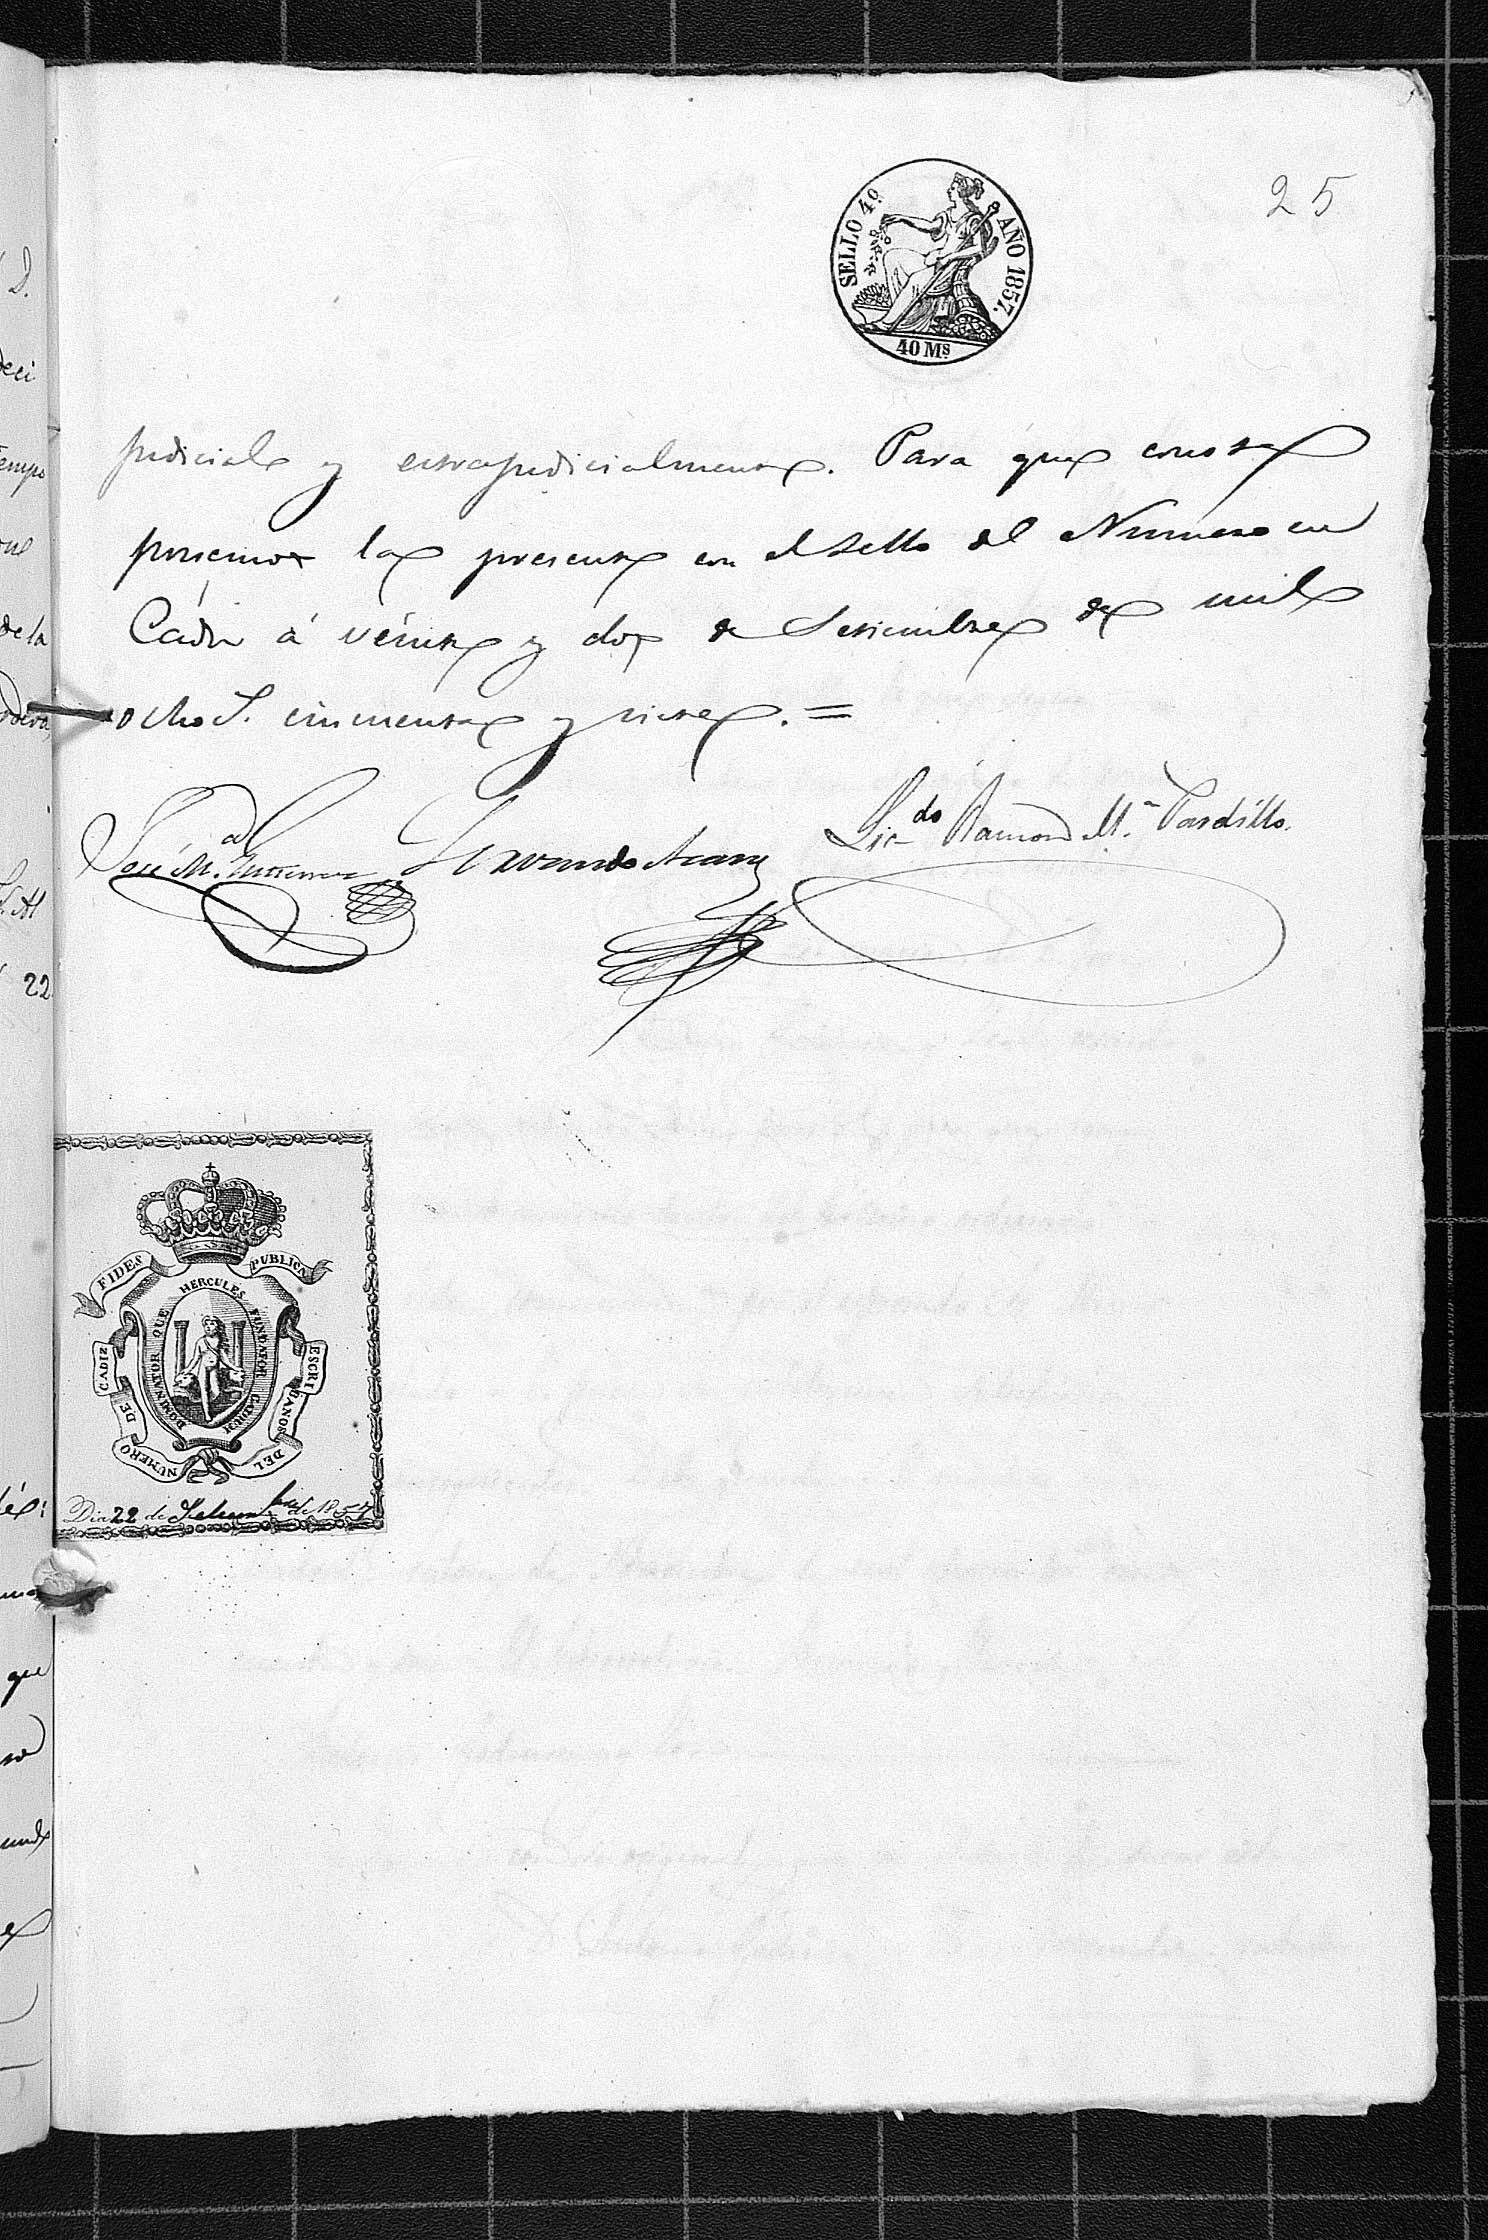 25
SELLO 4º AÑO 1857.
40 Ms
judicial y extrajudicialmente. Para que conste
ponemos la presente con el sello del Numero en
Cádiz á véinte y dos de Setiembre de mil
ocho S. cincuenta y siete. =
José Mª. Gutierrez
Servando
Licdo Ramon M.ª Pardillo.
FIDES PUBLICA
HERCULES FUNDATOR GADIUM DOMINATOR QUE
ESCRIBANOS DEL NUMERO DE CADIZ
Dia 22 de Setiembre de 1857
D.
deci
tiempo
de la
22
que